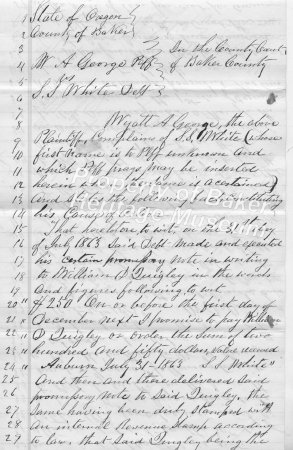 1 State of Oregon
2 County of Baker
3 In the County Court
4 W. A. George Plff of Baker County
5 vs
6 S. S. White Deft
7
8 Wyatt A. George, the above
9 Plaintiff Complains of S. S. White (whose
10 first name is to Plff unknown and
11 which Plff prays may be inserted
12 herein when the same is ascertained)
13 And the following facts constituting
14 his Cause of
15 That heretofore to wit, on the 31st day
16 of July 1863 Said Deft made and executed
17 his certain promissory note in writing
18 to William P Quigley in the words
19 And figures following to wit
20 "$250. On or before the first day of
21 " December next I promise to pay William
22 " P Quigley or order the sum of two
23 " hundred and fifty dollars value received
24 " Auburn July 31-1863 S. S. White"
25 And then and there delivered Said
26 promissory note to Said Quigley, the
27 Same having been duly Stamped with
28 an internal Revenue Stamp according
29 to law, that Said Quigley being the
Property of Baker
Heritage Museum